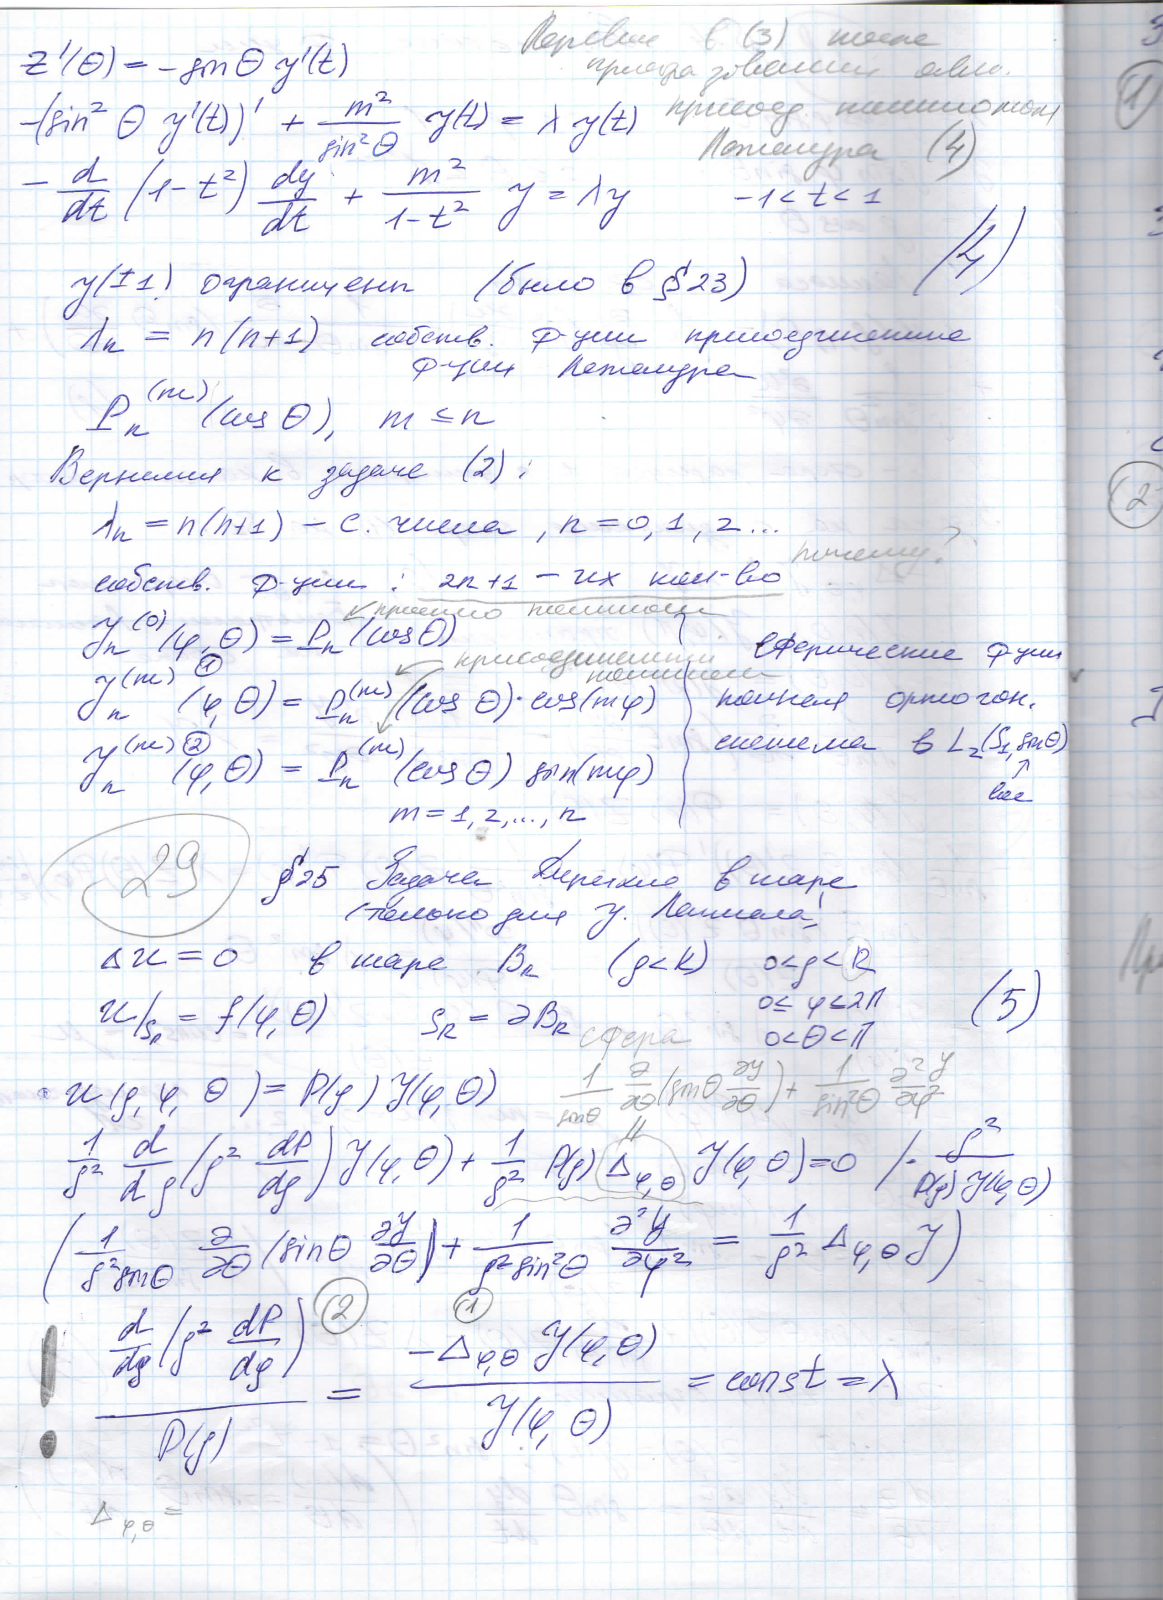 z'(θ) = - sinθ y'(t)
-(sin² θ y'(t))' + m²/sin²θ y(t) = λ y(t)
Перевели в (3) после
преобразования
присоед полиномом
Лежандра (4)
- d/dt (1-t²) dy/dt + m²/(1-t²) y = λy -1 < t < 1
(4)
y(±1) ограничен (было в §23)
λn = n(n+1) собств. ф-ции присоединенные
ф-ции Лежандра
Pn^(m) (cos θ), m ≤ n
Вернемся к задаче (2):
λn = n(n+1) - с. числа, n = 0, 1, 2...
почему?
собств. ф-ции: 2n+1 - их кол-во
просто полином
Yn^(0) (φ, θ) = Pn (cosθ)
присоединенный
полином
Yn^(m) ① (φ, θ) = Pn^(m) (cos θ)·cos(mφ)
Yn^(m) ② (φ, θ) = Pn^(m) (cos θ) sin(mφ)
m = 1, 2, ..., n
сферические ф-ции
полная ортогон.
система в L₂(S₁, sinθ)
вес
29
§25 Задача Дирихле в шаре
(только для у. Лапласа)
Δu = 0 в шаре BR (ρ<R) 0<ρ<R
0≤φ<2π
0<θ<π
u|SR = f(φ, θ) SR = ∂BR сфера (5)
u(ρ, φ, θ) = P(ρ) Y(φ, θ)
1/sinθ ∂/∂θ (sinθ ∂y/∂θ) + 1/sin²θ ∂²y/∂φ²
1/ρ² d/dρ (ρ² dP/dρ) Y(φ, θ) + 1/ρ² P(ρ) Δφ,θ Y(φ, θ) = 0 | · ρ²/(P(ρ) Y(φ, θ))
(1/(ρ² sinθ) ∂/∂θ (sinθ ∂Y/∂θ) + 1/(ρ² sin²θ) ∂²Y/∂φ² = 1/ρ² Δφ,θ Y)
② ①
! d/dρ (ρ² dP/dρ) / P(ρ) = -Δφ,θ Y(φ, θ) / Y(φ, θ) = const = λ
Δφ,θ =